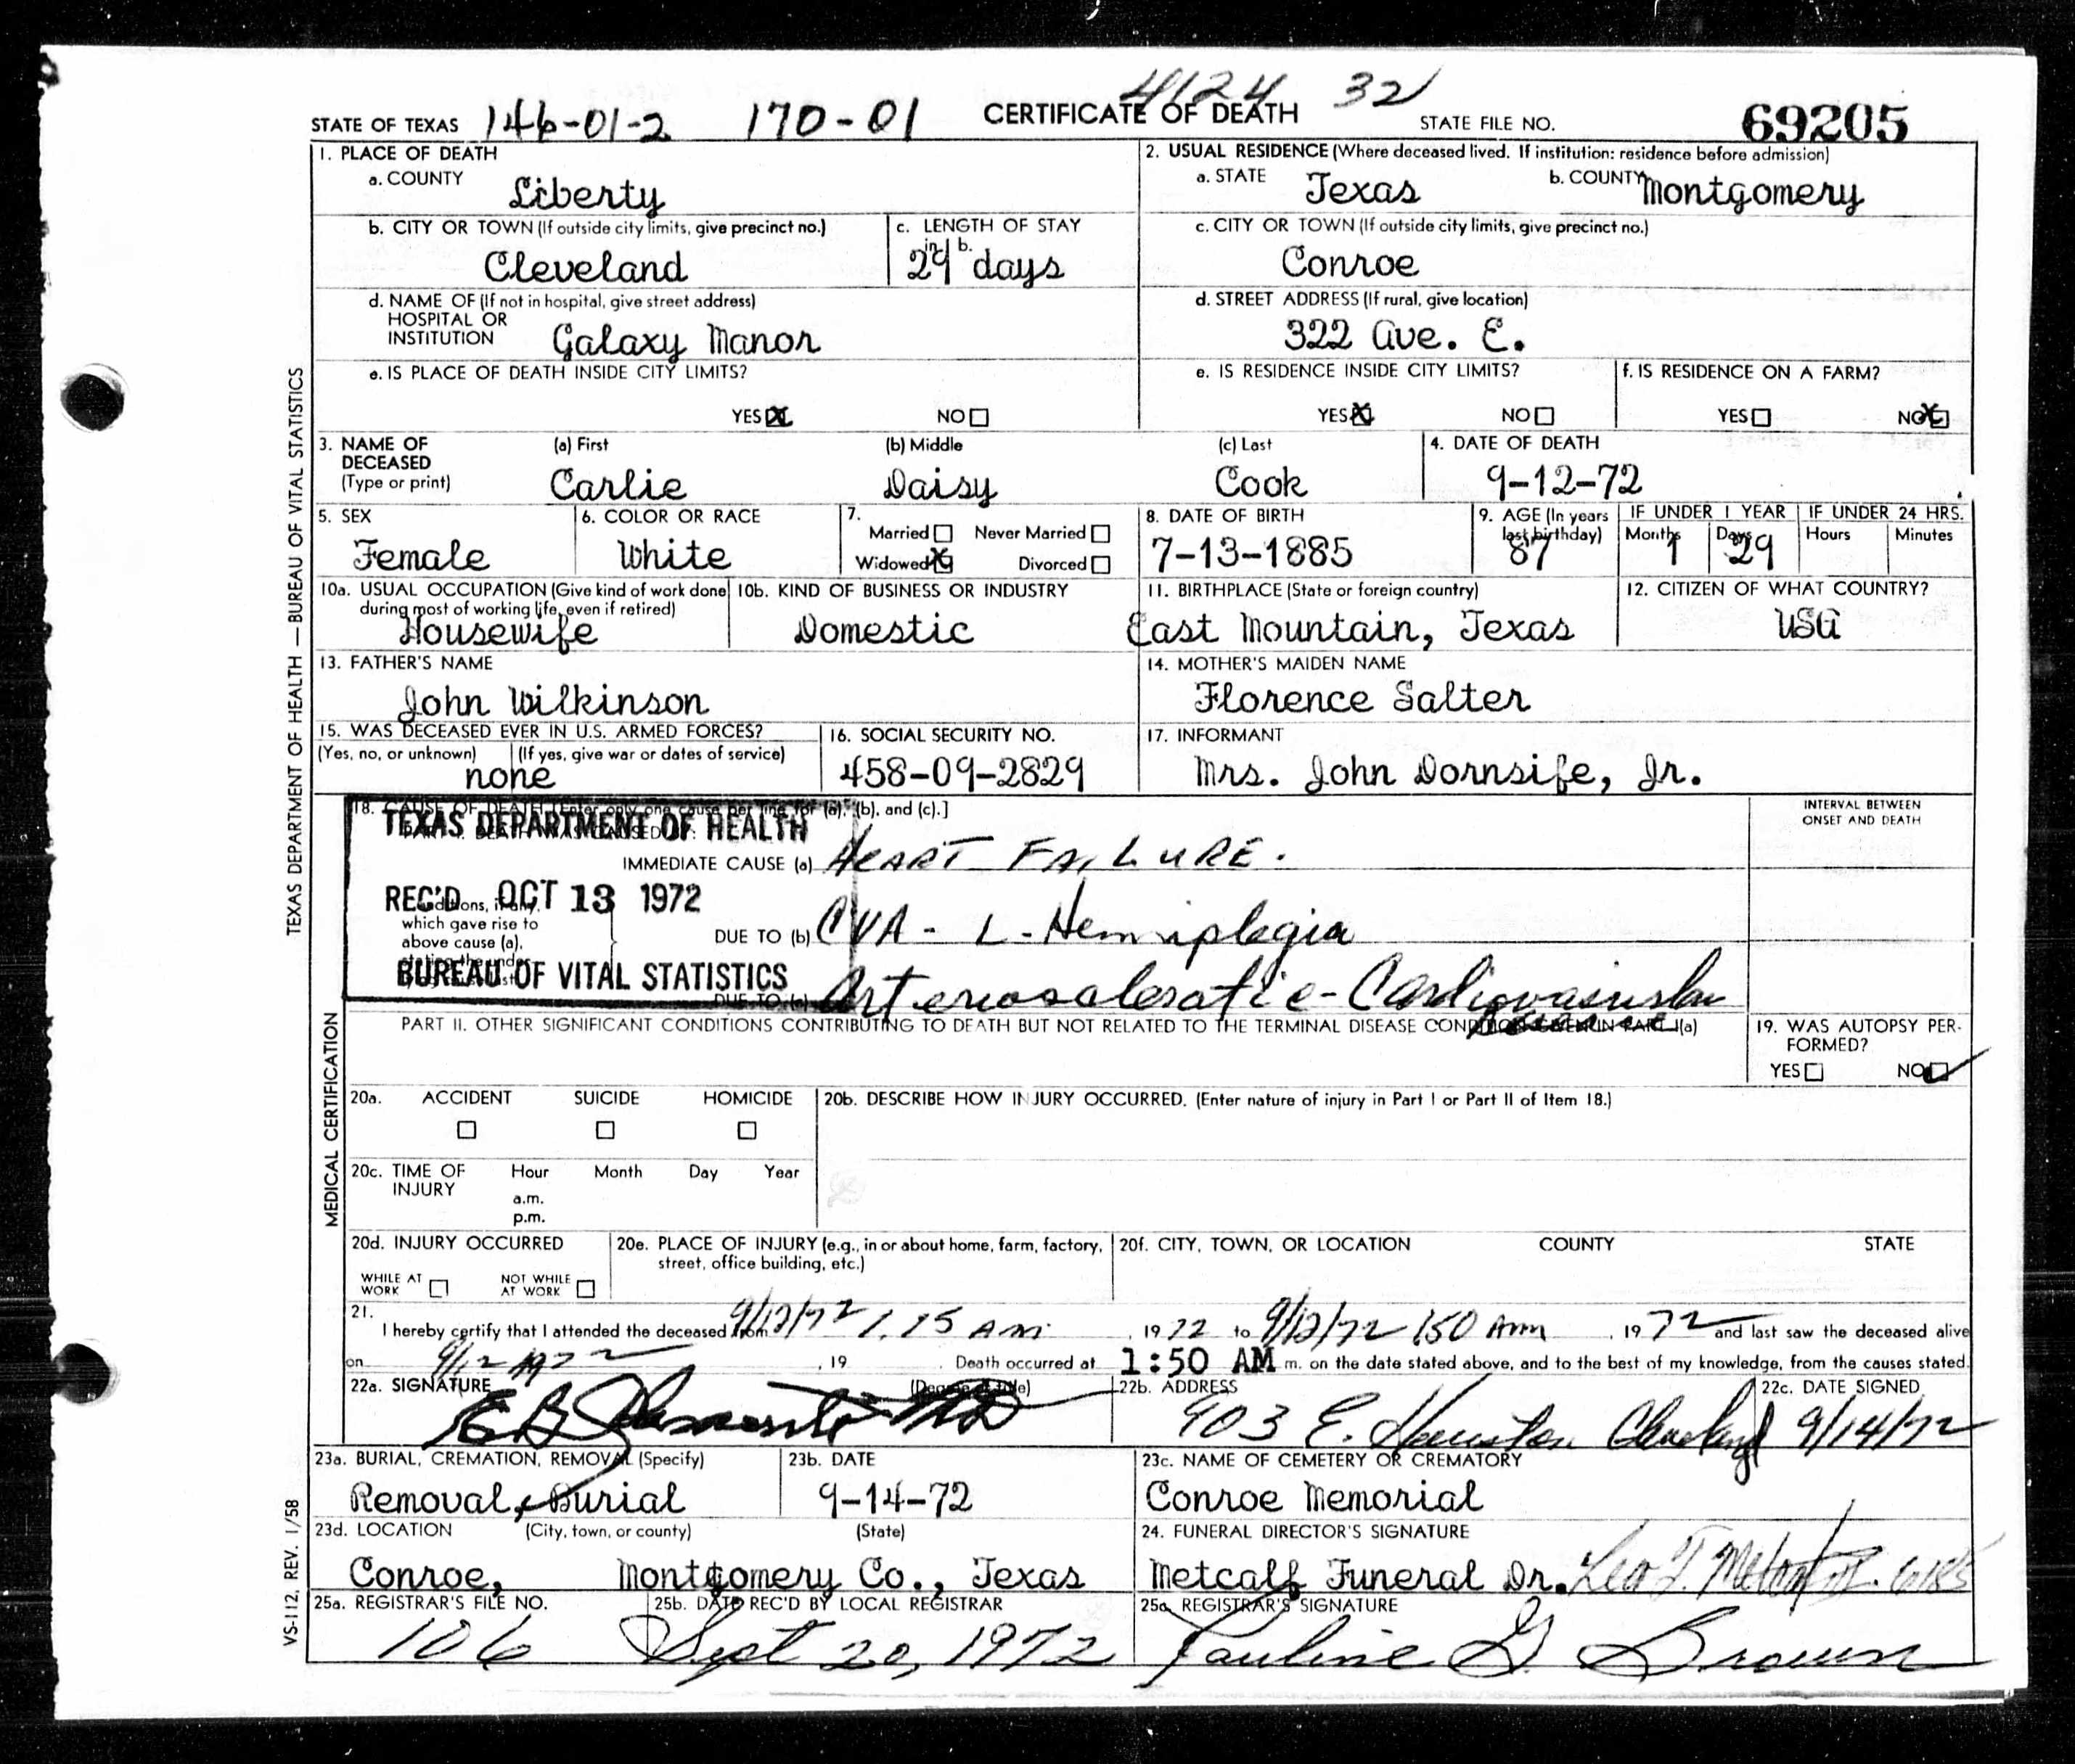 4124 32
STATE OF TEXAS 146-01-2 170-01 CERTIFICATE OF DEATH STATE FILE NO. 69205
1. PLACE OF DEATH
a. COUNTY Liberty
2. USUAL RESIDENCE (Where deceased lived. If institution: residence before admission)
a. STATE Texas b. COUNTY Montgomery
b. CITY OR TOWN (If outside city limits, give precinct no.)
Cleveland
c. LENGTH OF STAY
in 1 b.
29 days
c. CITY OR TOWN (If outside city limits, give precinct no.)
Conroe
d. NAME OF (If not in hospital, give street address)
HOSPITAL OR
INSTITUTION Galaxy Manor
d. STREET ADDRESS (If rural, give location)
322 Ave. E.
e. IS PLACE OF DEATH INSIDE CITY LIMITS?
YES X NO
e. IS RESIDENCE INSIDE CITY LIMITS?
YES X NO
f. IS RESIDENCE ON A FARM?
YES NO X
3. NAME OF DECEASED
(Type or print)
(a) First (b) Middle (c) Last
Carlie Daisy Cook
4. DATE OF DEATH
9-12-72
5. SEX
Female
6. COLOR OR RACE
White
7.
Married Never Married
Widowed X Divorced
8. DATE OF BIRTH
7-13-1885
9. AGE (In years
last birthday)
87
IF UNDER 1 YEAR
Months Days
1 29
IF UNDER 24 HRS.
Hours Minutes
10a. USUAL OCCUPATION (Give kind of work done
during most of working life, even if retired)
Housewife
10b. KIND OF BUSINESS OR INDUSTRY
Domestic
11. BIRTHPLACE (State or foreign country)
East Mountain, Texas
12. CITIZEN OF WHAT COUNTRY?
USA
13. FATHER'S NAME
John Wilkinson
14. MOTHER'S MAIDEN NAME
Florence Salter
15. WAS DECEASED EVER IN U.S. ARMED FORCES?
(Yes, no, or unknown) (If yes, give war or dates of service)
none
16. SOCIAL SECURITY NO.
458-09-2829
17. INFORMANT
Mrs. John Dornsife, Jr.
18. CAUSE OF DEATH [Enter only one cause per line for (a), (b), and (c).]
INTERVAL BETWEEN
ONSET AND DEATH
TEXAS DEPARTMENT OF HEALTH
IMMEDIATE CAUSE (a) HEART FAILURE.
REC'D OCT 13 1972
which gave rise to
above cause (a),
DUE TO (b) CVA - L - Hemiplegia
BUREAU OF VITAL STATISTICS
DUE TO (c) Arteriosclerotic - Cardiovascular
Disease
PART II. OTHER SIGNIFICANT CONDITIONS CONTRIBUTING TO DEATH BUT NOT RELATED TO THE TERMINAL DISEASE CONDITION GIVEN IN PART I(a)
19. WAS AUTOPSY PER-
FORMED?
YES NO ✓
20a. ACCIDENT SUICIDE HOMICIDE
20b. DESCRIBE HOW INJURY OCCURRED. (Enter nature of injury in Part I or Part II of Item 18.)
20c. TIME OF INJURY
Hour Month Day Year
a.m.
p.m.
20d. INJURY OCCURRED
WHILE AT WORK NOT WHILE AT WORK
20e. PLACE OF INJURY (e.g., in or about home, farm, factory,
street, office building, etc.)
20f. CITY, TOWN, OR LOCATION COUNTY STATE
21.
I hereby certify that I attended the deceased from 9/12/72 1.15 Am, 1972 to 9/12/72 150 Am, 1972 and last saw the deceased alive
on 9/12 1972, 19 . Death occurred at 1:50 AM m. on the date stated above, and to the best of my knowledge, from the causes stated.
22a. SIGNATURE (Degree or title)
E B MD
22b. ADDRESS
903 E. Houston Cleveland
22c. DATE SIGNED
9/14/72
23a. BURIAL, CREMATION, REMOVAL (Specify)
Removal, & Burial
23b. DATE
9-14-72
23c. NAME OF CEMETERY OR CREMATORY
Conroe Memorial
23d. LOCATION (City, town, or county) (State)
Conroe, Montgomery Co., Texas
24. FUNERAL DIRECTOR'S SIGNATURE
Metcalf Funeral Dr. Leo T. Metcalf
25a. REGISTRAR'S FILE NO.
106
25b. DATE REC'D BY LOCAL REGISTRAR
Sept 20, 1972
25c. REGISTRAR'S SIGNATURE
Pauline G. Brown
TEXAS DEPARTMENT OF HEALTH — BUREAU OF VITAL STATISTICS
MEDICAL CERTIFICATION
VS-112, REV. 1/58